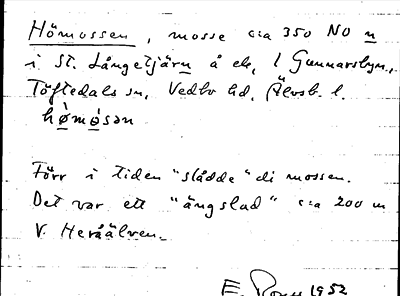 Hömossen, mosse c:a 350 NO n
i St. Långetjärn å ek, l Gunnarsbyn,
Töftedals sn, Vedbo hd, Älvsb. l.
hø̀mósən
Förr i tiden "slådde" di mossen.
Det var ett "ängslad" c:a 200 m
V. Heråälven.
E. 1952